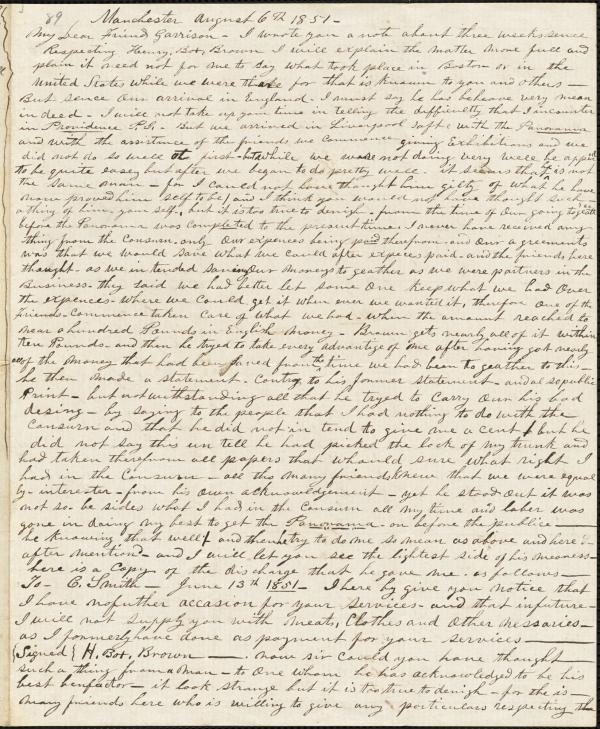 89 Manchester August 6th 1851-
My Dear Friend Garrison - I wrote you a note about three weeks sence
Respecting Henry, Box, Brown I will explain the matter more full and
plain it need not for me to say what took place in Boston or in the
United States while we were there for that is known to you and others -
But sence our arrival in England. I must say he has behave very mean
in deed - I will not take up your time in telling the difficulty that I incounter
in Providence R.I. - But we arrived in Liverpool saft with the Panorama
and with the assistance of the friends we commence giving Exhibitions and we
did not do so well at first - but while we ware not doing very well he appear
to be quite easey but after we began to do pretty well. it seems that is not
the same man - for I could not have thought him gilty of what he have
now proved him self to be and I think you would not have thought such
a thing of him, your self, but it is too true to denigh, from the time of our going togeather
before the Panorama was completed to the present time I never have received any
thing from the Consurn. only our expences being paid therefrom and our agreements
was that we would save what we could after expeces paid. and the friends here
thought. as we in tended saveing our moneys to geather as we were partners in the
Business. they said we had better let some one keep what we had over
the expences. where we could get it when ever we wanted it, therefore one of the
friends. commence taken care of what we had. when the amount reached to
near a hundred Pounds in English money - Brown gets nearly all of it within
ten Pounds. and then he tryed to take every advantage of me after having got nearly
all of the money that had been saved from the time we had been to geather to this -
he then made a statement. contry to his former statement. and also public
Print - but not withstanding all that he tryed to carry our his bad
desing - by saying to the people that I had nothing to do with the
Consurn and that he did not in tend to give me a cent, but he
did not say this un tell he had picked the lock of my trunk and
had taken therefrom all papers that whould sure what right I
had in the Consurn - all tho many friends knew that we were equal
by- interester - from his own acknowledgement - yet he stood out it was
not so. be sides what I had in the Consurn all my time and laber was
gone in doing my best to get the Panorama - on before the public -
he knowing that well, and then try to do me so mean as above and here
after mention - and I will let you see the lightest side of his meaness -
here is a Copy of the discharge that he gave me. as follows -
To - C. Smith - June 13th 1851 - I here by give you notice that
I have no further accasion for your Services - and that in future -
I will not supply you with meats, Clothes and other nessaries -
as I formerly have done as payment for your services -
(Signed) H. Box, Brown - . now sir could you have thought
such a thing from a man - to one whom he has acknowledged to be his
best benfactor - it look strange but it is too true to denigh - for the is -
many friends here who is willing to give any particulars respecting the